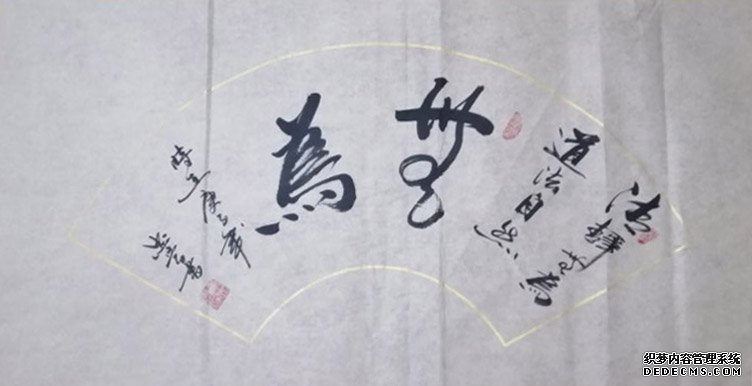 清靜無為
道法自然
無為
時在庚子歲
書
织梦内容管理系统
DEDECMS.COM